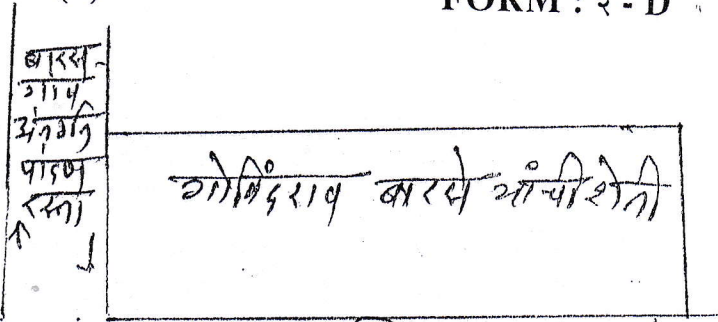 FORM : २ - D
बारस-
गाव
अंतर्गत
पांदण
रस्ता
गोविंदराव बारसे यांची शेती